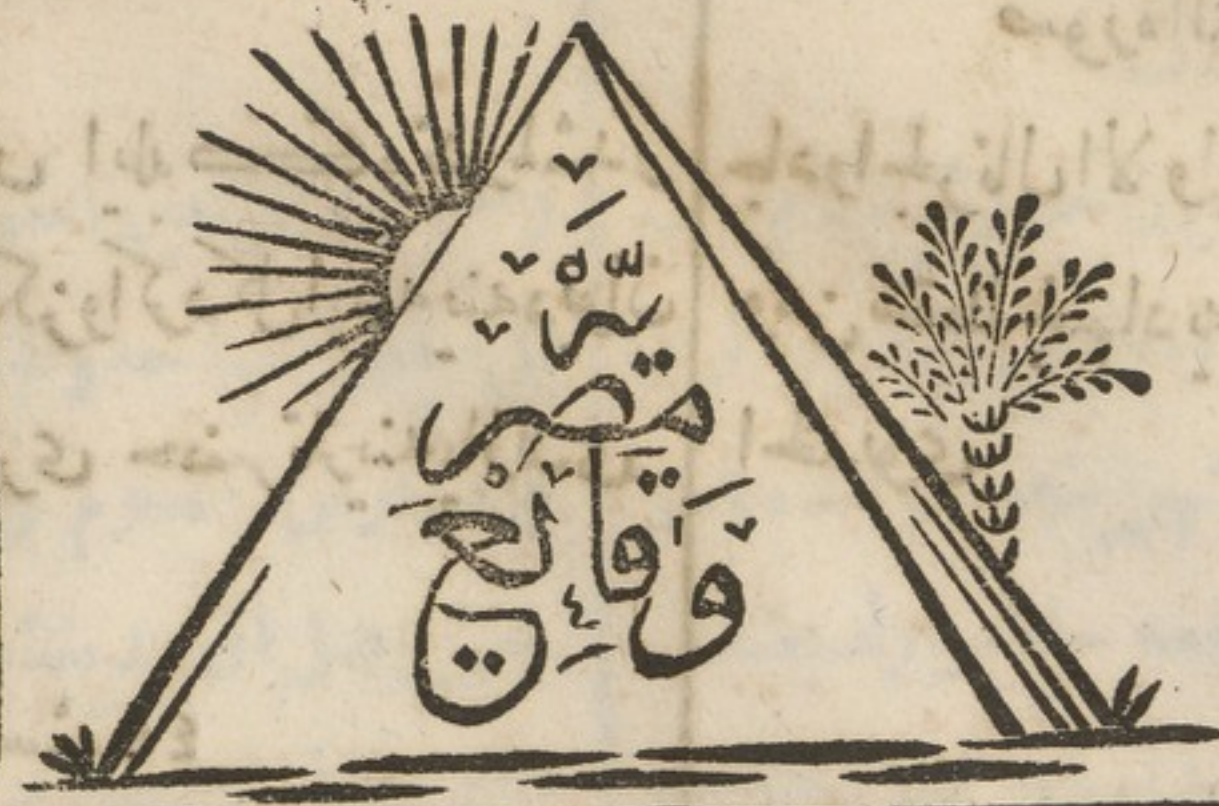 وَقَائِع
مصريَّه